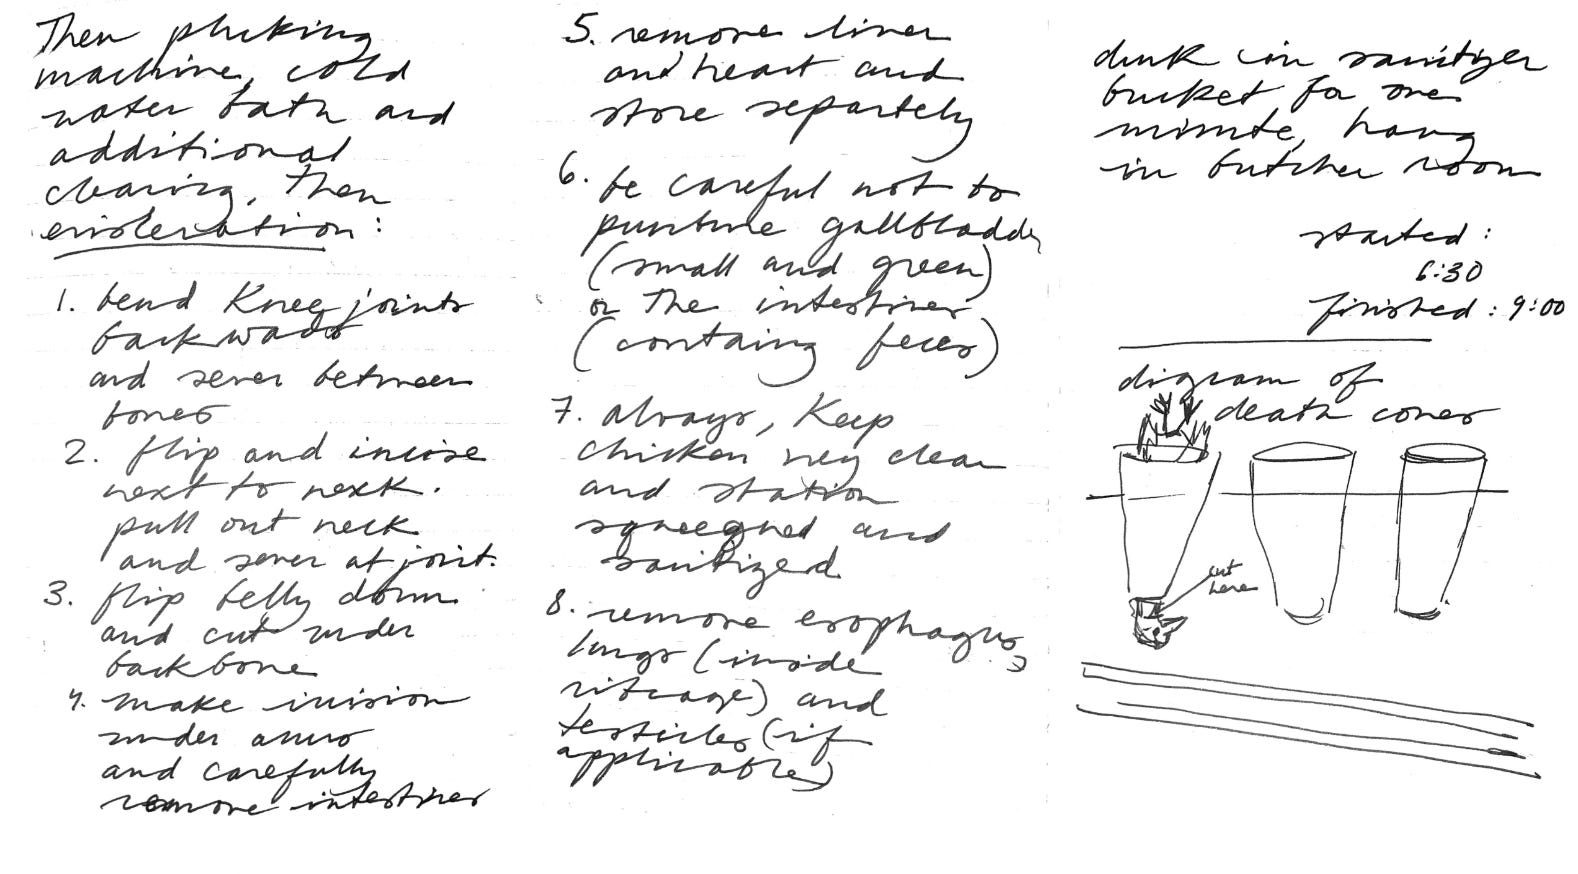 Then plucking
machine, cold
water bath and
additional
cleaning, then
evisceration:
1. bend Knee joints
backwads
and sever between
bones
2. flip and incise
next to neck.
pull out neck
and sever at joint.
3. flip belly down
and cut under
backbone
4. make incision
under anus
and carefully
remove intestines
5. remove liver
and heart and
store separtely
6. be careful not to
punture gallbladder
(small and green)
or the intestines
(containg feces)
7. always, Keep
chicken very clean
and station
squeegeed and
sanitized
8. remove esophagus,
lungs (inside
ribcage) and
testicles (if
applicable)
dunk in sanitizer
bucket for one
minute, hang
in butcher room
started:
6:30
finished: 9:00
digram of
death cones
cut
here